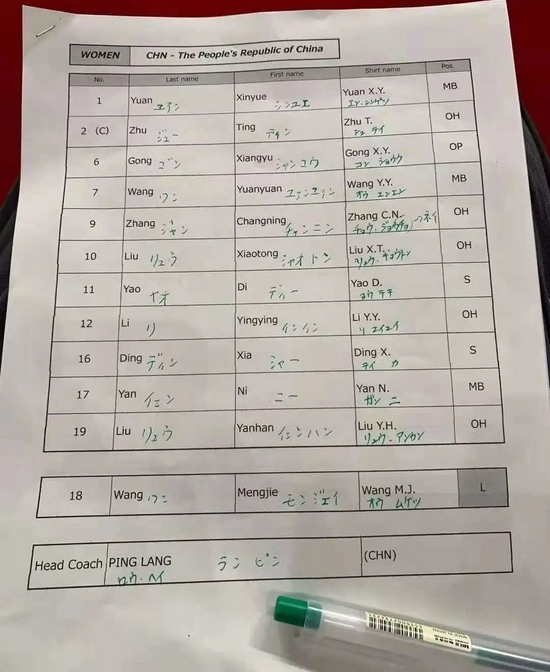 WOMEN CHN - The People's Republic of China
No. Last name First name Shirt name Pos.
1 Yuan ユアン Xinyue シンユエ Yuan X.Y. MB
2 (C) Zhu ジュー Ting ティン Zhu T. OH
シュ テイ
6 Gong ゴン Xiangyu シャンユウ Gong X.Y. OP
コン ショウウ
7 Wang ワン Yuanyuan ユアンユアン Wang Y.Y. MB
オウ エンエン
9 Zhang ジャン Changning チャンニン Zhang C.N. OH
10 Liu リュウ Xiaotong シャオトン Liu X.T. OH
リュウ ギョウトウ
11 Yao ヤオ Di ディー Yao D. S
ヨウ テキ
12 Li リ Yingying インイン Li Y.Y. OH
リ エイエイ
16 Ding ディン Xia シャー Ding X. S
テイ カ
17 Yan イェン Ni ニー Yan N. MB
ガン ニ
19 Liu リュウ Yanhan イェンハン Liu Y.H. OH
リュウ・アンカン
18 Wang ワン Mengjie モンジェイ Wang M.J. L
オウ ムケツ
Head Coach PING LANG ラン ピン (CHN)
ロウ・ヘイ